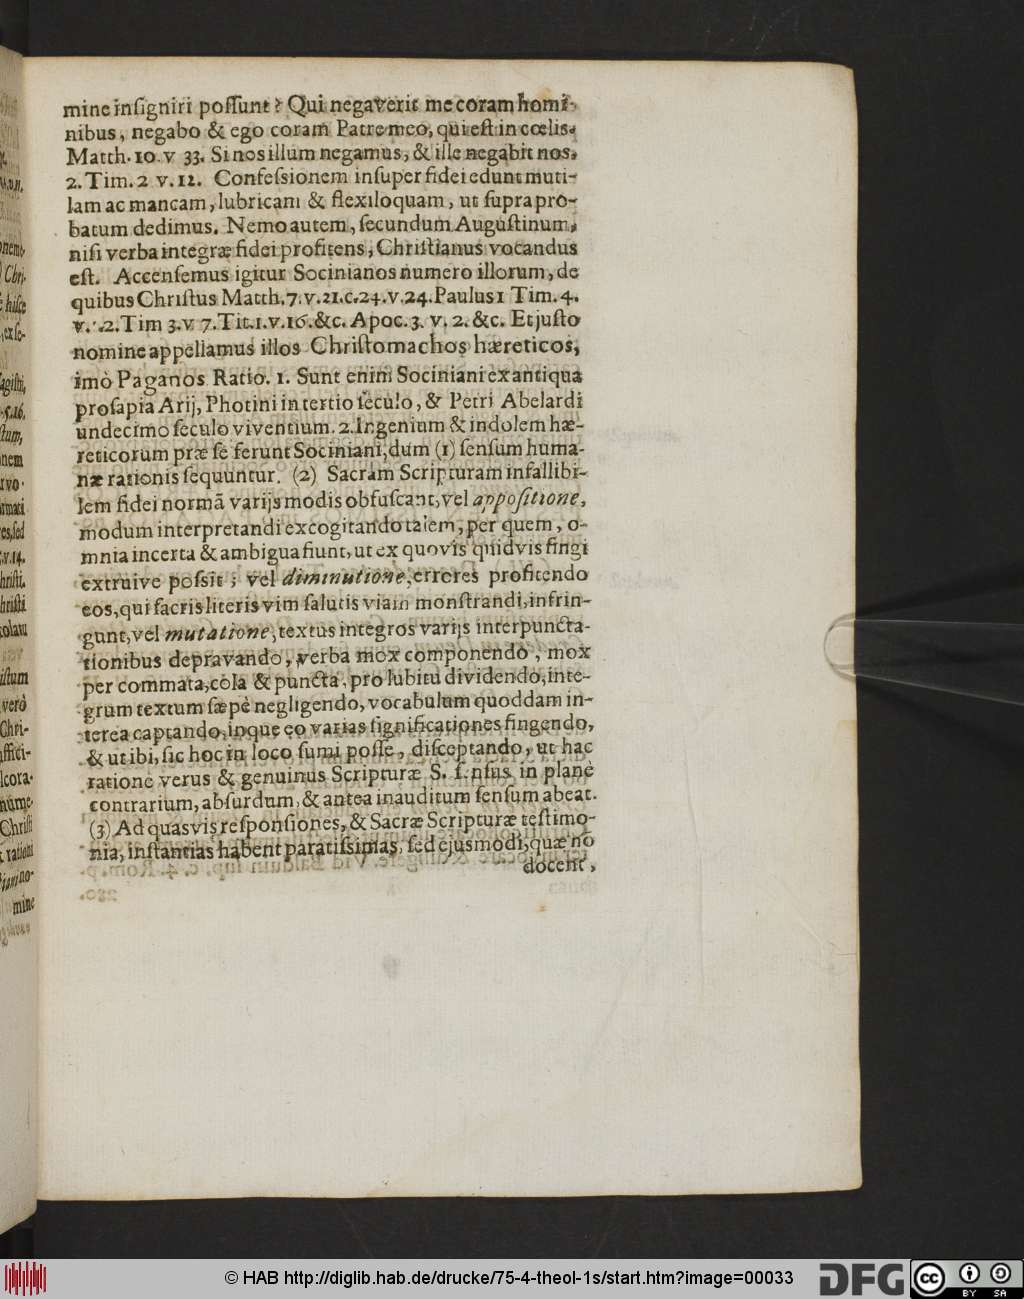 mine insigniri possunt? Qui negaverit me coram homi-
nibus, negabo & ego coram Patre meo, qui est in cœlis.
Matth. 10. v 33. Si nos illum negamus, & ille negabit nos.
2. Tim. 2 v. 12. Confessionem insuper fidei edunt muti-
lam ac mancam, lubricam & flexiloquam, ut supra pro-
batum dedimus. Nemo autem, secundum Augustinum,
nisi verba integræ fidei profitens, Christianus vocandus
est. Accensemus igitur Socinianos numero illorum, de
quibus Christus Matth. 7. v. 21. c. 24. v. 24. Paulus 1 Tim. 4.
v. 2. Tim 3. v 7. Tit. 1. v. 16. &c. Apoc. 3. v. 2. &c. Et justo
nomine appellamus illos Christomachos hæreticos,
imò Paganos Ratio. 1. Sunt enim Sociniani ex antiqua
prosapia Arij, Photini in tertio seculo, & Petri Abelardi
undecimo seculo viventium. 2. Ingenium & indolem hæ-
reticorum præ se ferunt Sociniani, dum (1) sensum huma-
næ rationis sequuntur. (2) Sacram Scripturam infallibi-
lem fidei normã varijs modis obfuscant, vel appositione,
modum interpretandi excogitando talem, per quem, o-
mnia incerta & ambigua fiunt, ut ex quovis quidvis fingi
extruive possit; vel diminutione, errores profitendo
eos, qui sacris literis vim salutis viam monstrandi, infrin-
gunt, vel mutatione, textus integros varijs interpuncta-
tionibus depravando, verba mox componendo, mox
per commata, cola & puncta, pro lubitu dividendo, inte-
grum textum sæpè negligendo, vocabulum quoddam in-
terea captando, inque eo varias significationes fingendo,
& ut ibi, sic hoc in loco sumi posse, disceptando, ut hac
ratione verus & genuinus Scripturæ S. sensus in planè
contrarium, absurdum, & antea inauditum sensum abeat.
(3) Ad quasvis responsiones, & Sacræ Scripturæ testimo-
nia, instantias habent paratissimas, sed ejusmodi, quæ nõ
docent,
© HAB http://diglib.hab.de/drucke/75-4-theol-1s/start.htm?image=00033
DFG
cc BY SA